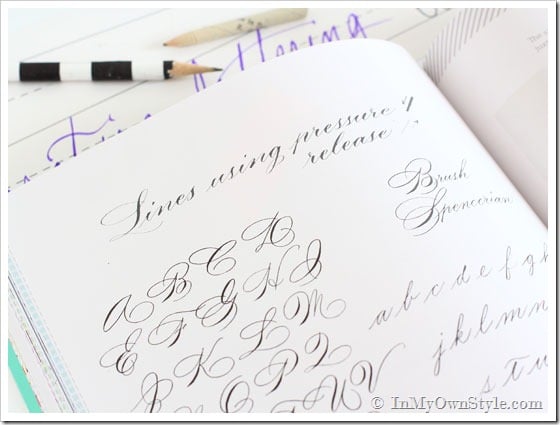 lettering
Lines using pressure &
release
Brush
Spencerian
A B C D
E F G H I
J K L M
N O P Q
T U V
a b c d e f g h
j k l m n
s t u
© InMyOwnStyle.com